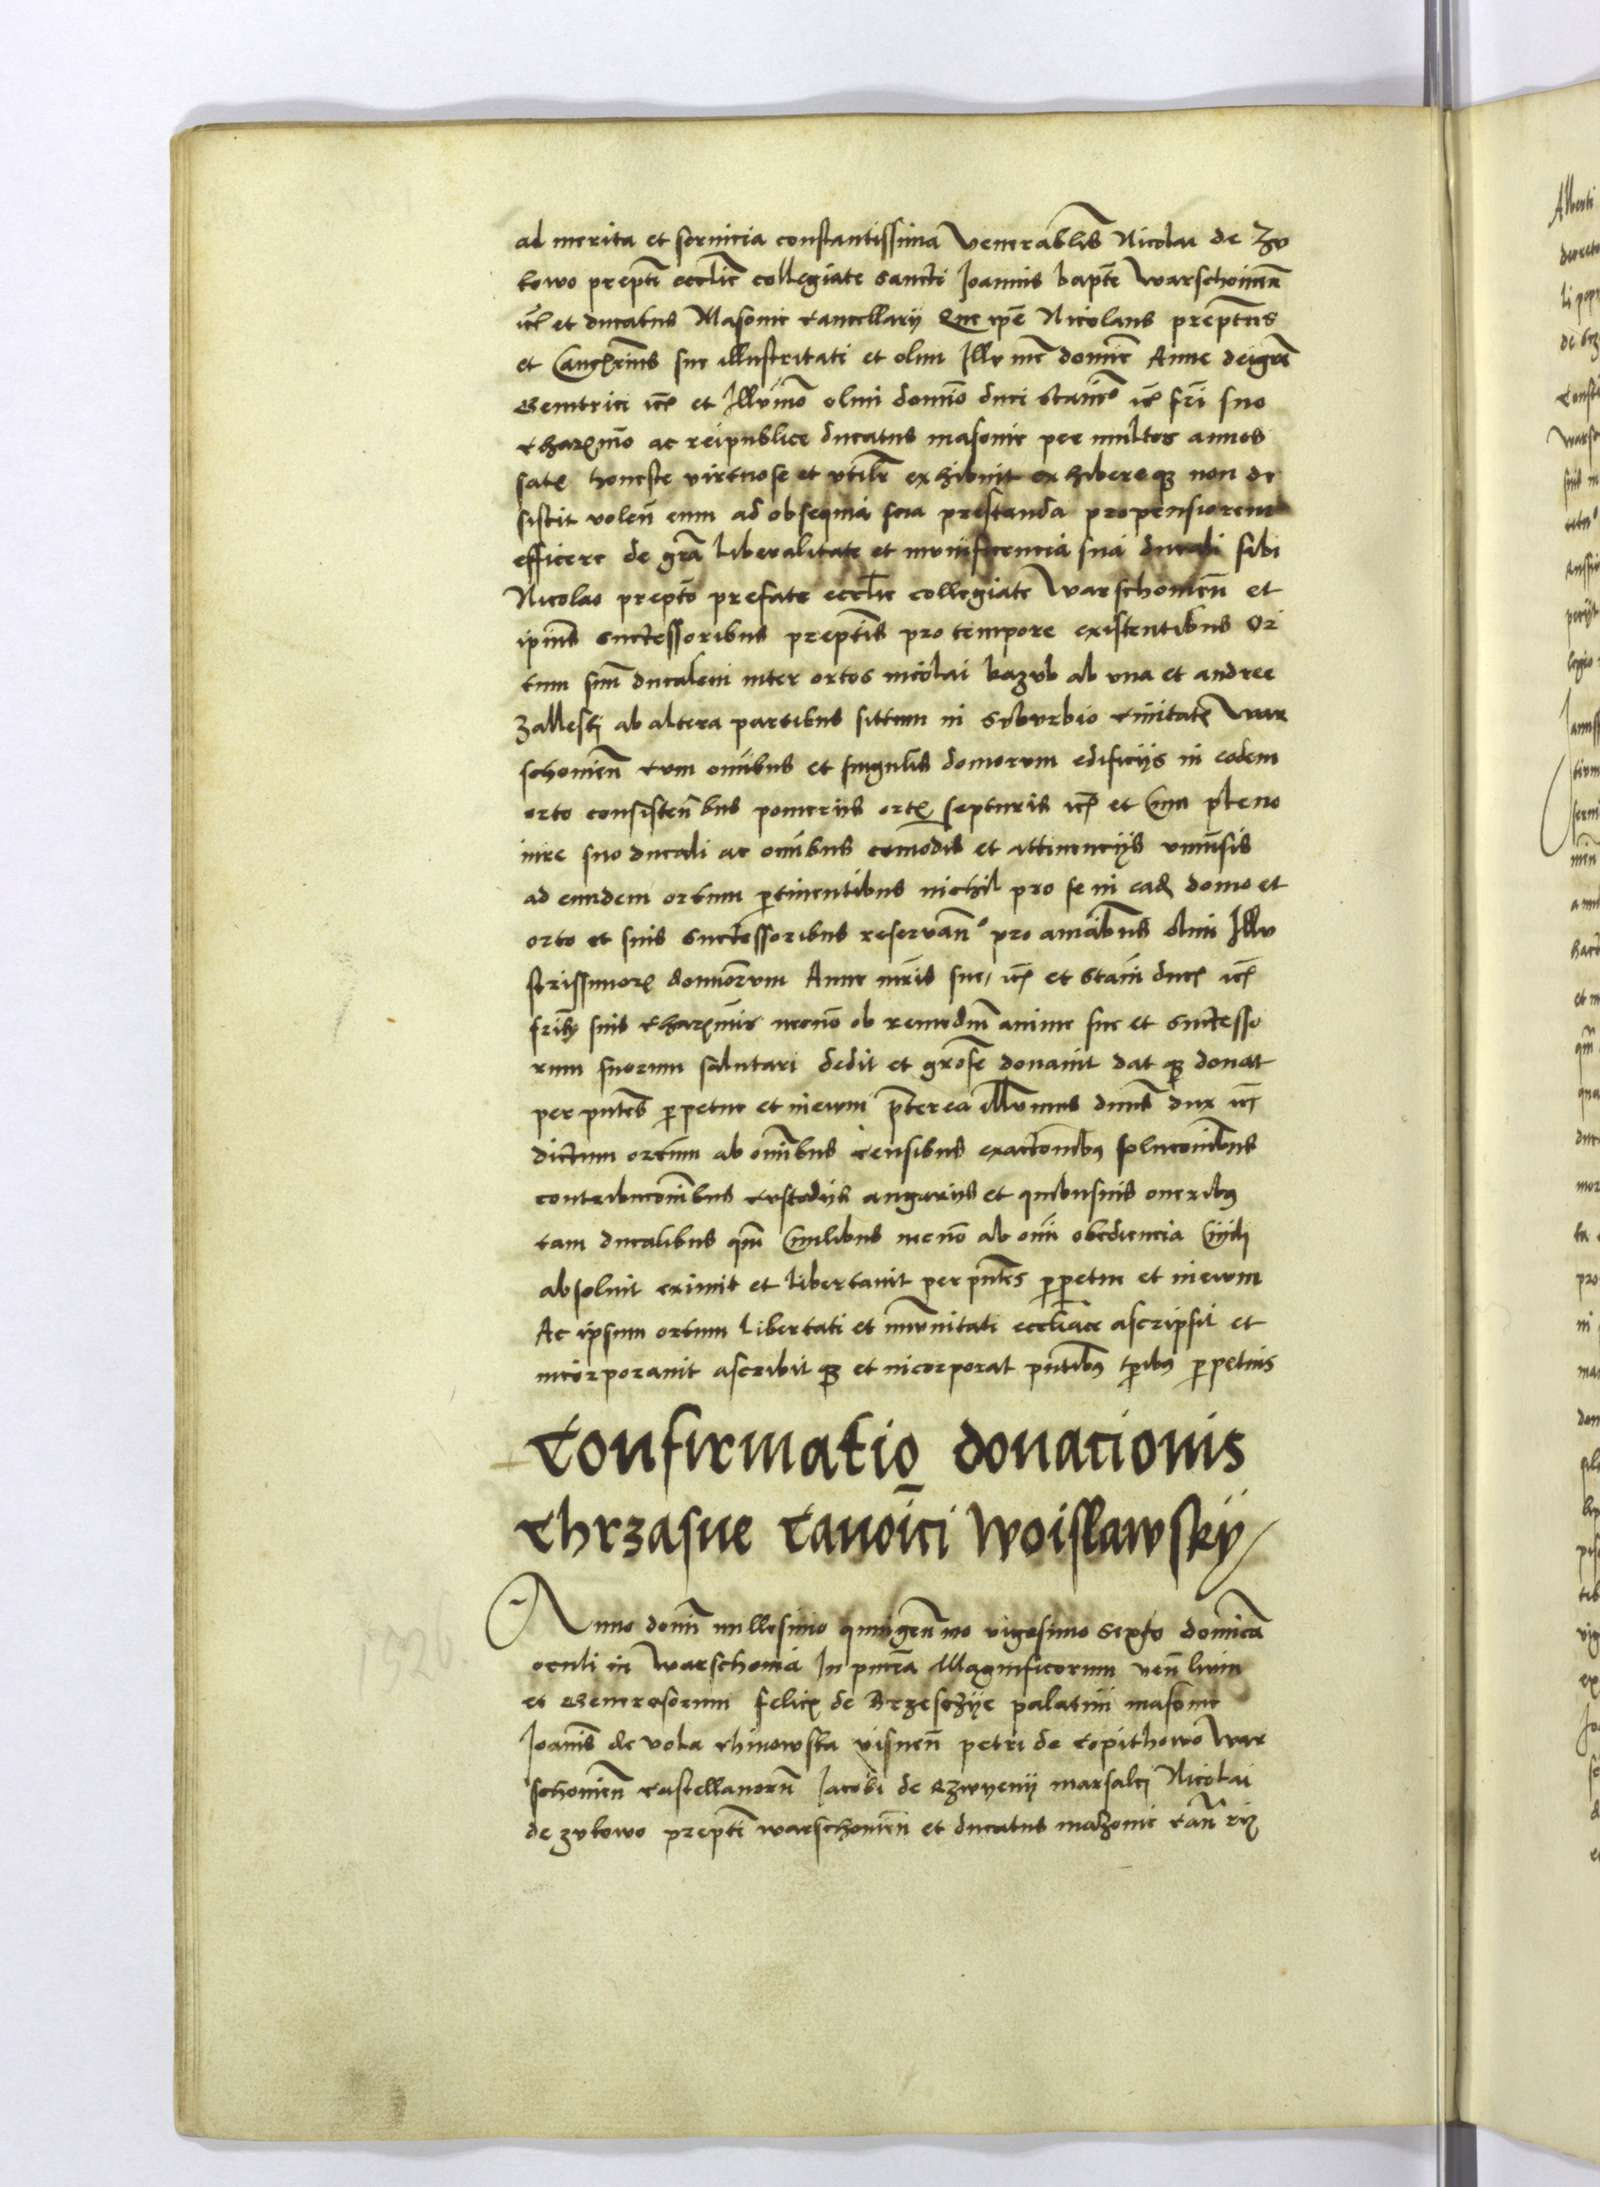 ad merita et servicia constantissima Venerablis Nicolai de Zu
kowo prepti ecclie collegiate sancti Joannis bapte Warschovien
et ducatus Masovie Cancellarij Que ipe Nicolaus preptus
et sue illustritati et olim Illu me domine Anne dei gra
Genitrici et Illumo olim domino duci fri suo
charmo ac reipublice ducatus masovie per multos annos
satis honeste virtuose et utilr exhibuit exhibereque non de
sistit volen eum ad obsequia sua prestanda propensiorem
efficere de gra liberalitate et munificencia sua ducali sibi
Nicolao prepto prefate ecclie collegiate Warschovien et
ipius successoribus preptis pro tempore existentibus Or
tum suu ducalem inter ortos nicolai kazub ab una et andree
Zallesti ab altera partibus situm in Suburbio civitatis War
schovien cum omibus et singulis domorum edificijs in eodem
orto consistenbus pomeriis septuris et cum pleno
iure suo ducali ac omibus comodis et attinencijs univsis
ad eundem ortum ptinentibus nichil pro se in ead domo et
orto et suis successoribus reservan pro aniabus olim Illu
strissimor dominorum Anne mris sue, et Stani ducis
frib suis charmis necno ob remediu anime sue et successo
rum suorum salutari dedit et grose donavit dat que donat
per pntes ppetue et in ewm pterea illumus dnus dux
dictum ortum ab omibus censibus exactonibus solucoibus
contribucoibus custodijs angariis et quibusvis oneribus
tam ducalibus qm Civilibus necno ab omi obediencia
absolvit eximit et libertavit per pntes ppetuu et in ewm
Ac ipsum ortum libertati et imunitati ecclastice ascripsit et
incorporavit ascribit que et incorporat pntibus tpibus ppetuis
Confirmatio donacionis
Chrzasne Canoici Woislawskij
Anno domi millesimo quingenmo vigesimo sexto domica
oculi in Warschovia In pntia Magnificorum ven
et Generosorum felicis de Brzesczije palatini masovie
Joanis de vola chinowska visnen petri de Copithowo War
schovien castellanoru Jacobi de marsalci Nicolai
de zukowo prepti warschovien et ducatus mazovie
1526.